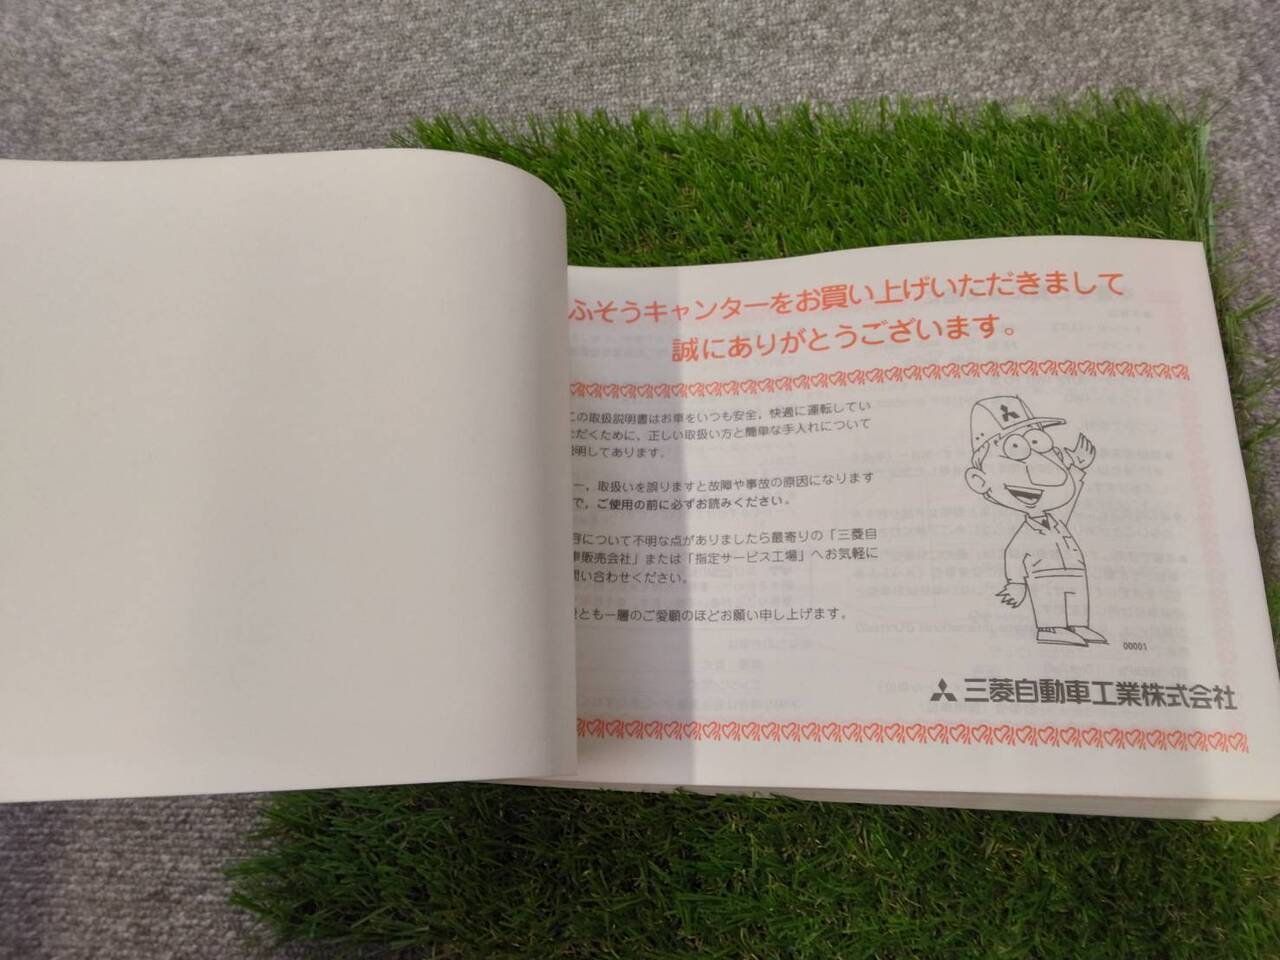 ふそうキャンターをお買い上げいただきまして
誠にありがとうございます。
この取扱説明書はお車をいつも安全，快適に運転してい
ただくために，正しい取扱い方と簡単な手入れについて
説明してあります。
一，取扱いを誤りますと故障や事故の原因になります
で，ご使用の前に必ずお読みください。
容について不明な点がありましたら最寄りの「三菱自
車販売会社」または「指定サービス工場」へお気軽に
問い合わせください。
とも一層のご愛顧のほどお願い申し上げます。
00001
三菱自動車工業株式会社